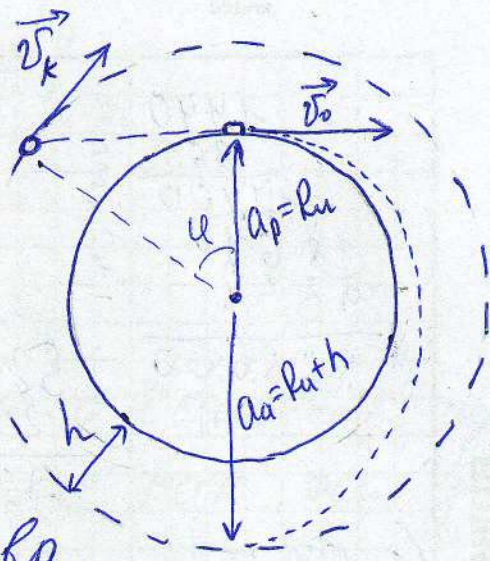 v⃗ₖ
v⃗₀
φ
aₚ=Rₙ
aₐ=Rₙ+h
h